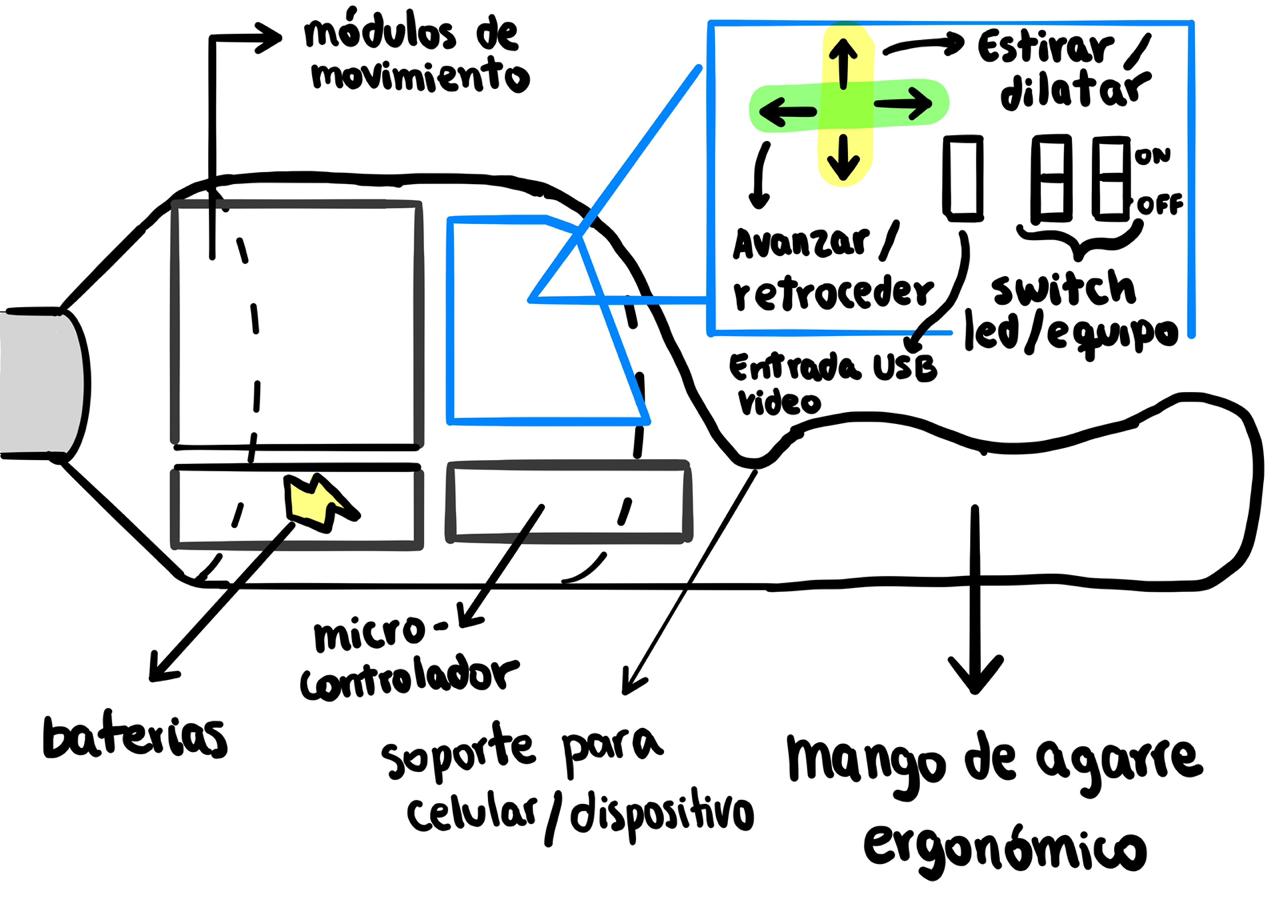 módulos de
movimiento
Estirar /
dilatar
ON
OFF
Avanzar /
retroceder
switch
led/equipo
Entrada USB
video
micro-
controlador
baterias
soporte para
celular/dispositivo
mango de agarre
ergonómico